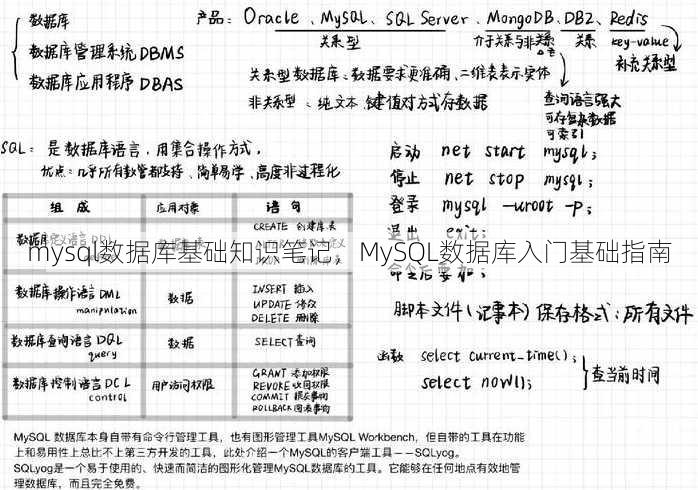 数据库
数据库管理系统 DBMS
数据库应用程序 DBAS
产品: Oracle、MySQL、SQL Server、MongoDB、DB2、Redis
关系型 介于关系与非关系之间 关系 key-value
补充关系型
关系型数据库:数据要求更准确、二维表表示实体
非关系型:纯文本、键值对方式存数据
查询语言强大
可存复杂数据
可索引
SQL: 是数据库语言,用集合操作方式,
优点:几乎所有数管都支持、简单易学、高度非过程化
组成 应用对象 语句
数据库定义语言 DDL
CREATE 创建库表
数据库操作语言 DML
manipulation
数据
INSERT 插入
UPDATE 修改
DELETE 删除
数据库查询语言 DQL
query
数据
SELECT 查询
数据库控制语言 DCL
control
用户访问权限
GRANT 添加权限
REVOKE 收回权限
COMMIT 提交事物
ROLLBACK 回滚事物
启动 net start mysql;
停止 net stop mysql;
登录 mysql -uroot -p;
退出 exit;
命令后要加;
mysql数据库基础知识笔记,MySQL数据库入门基础指南
脚本文件(记事本)保存格式:所有文件
函数 select current_time();
select now();
查当前时间
MySQL 数据库本身自带有命令行管理工具,也有图形管理工具MySQL Workbench,但自带的工具在功能
上和易用性上总比不上第三方开发的工具,此处介绍一个MySQL的客户端工具——SQLyog。
SQLyog是一个易于使用的、快速而简洁的图形化管理MySQL数据库的工具。它能够在任何地点有效地管
理数据库,而且完全免费。